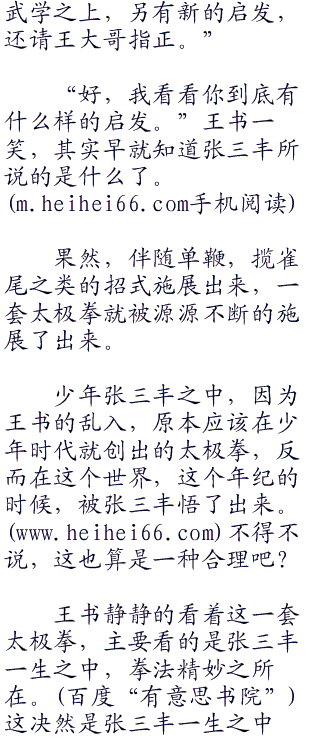 武学之上，另有新的启发，
还请王大哥指正。”
“好，我看看你到底有
什么样的启发。”王书一
笑，其实早就知道张三丰所
说的是什么了。
(m.heihei66.com手机阅读)
果然，伴随单鞭，揽雀
尾之类的招式施展出来，一
套太极拳就被源源不断的施
展了出来。
少年张三丰之中，因为
王书的乱入，原本应该在少
年时代就创出的太极拳，反
而在这个世界，这个年纪的
时候，被张三丰悟了出来。
(www.heihei66.com)不得不
说，这也算是一种合理吧？
王书静静的看着这一套
太极拳，主要看的是张三丰
一生之中，拳法精妙之所
在。(百度“有意思书院”)
这决然是张三丰一生之中